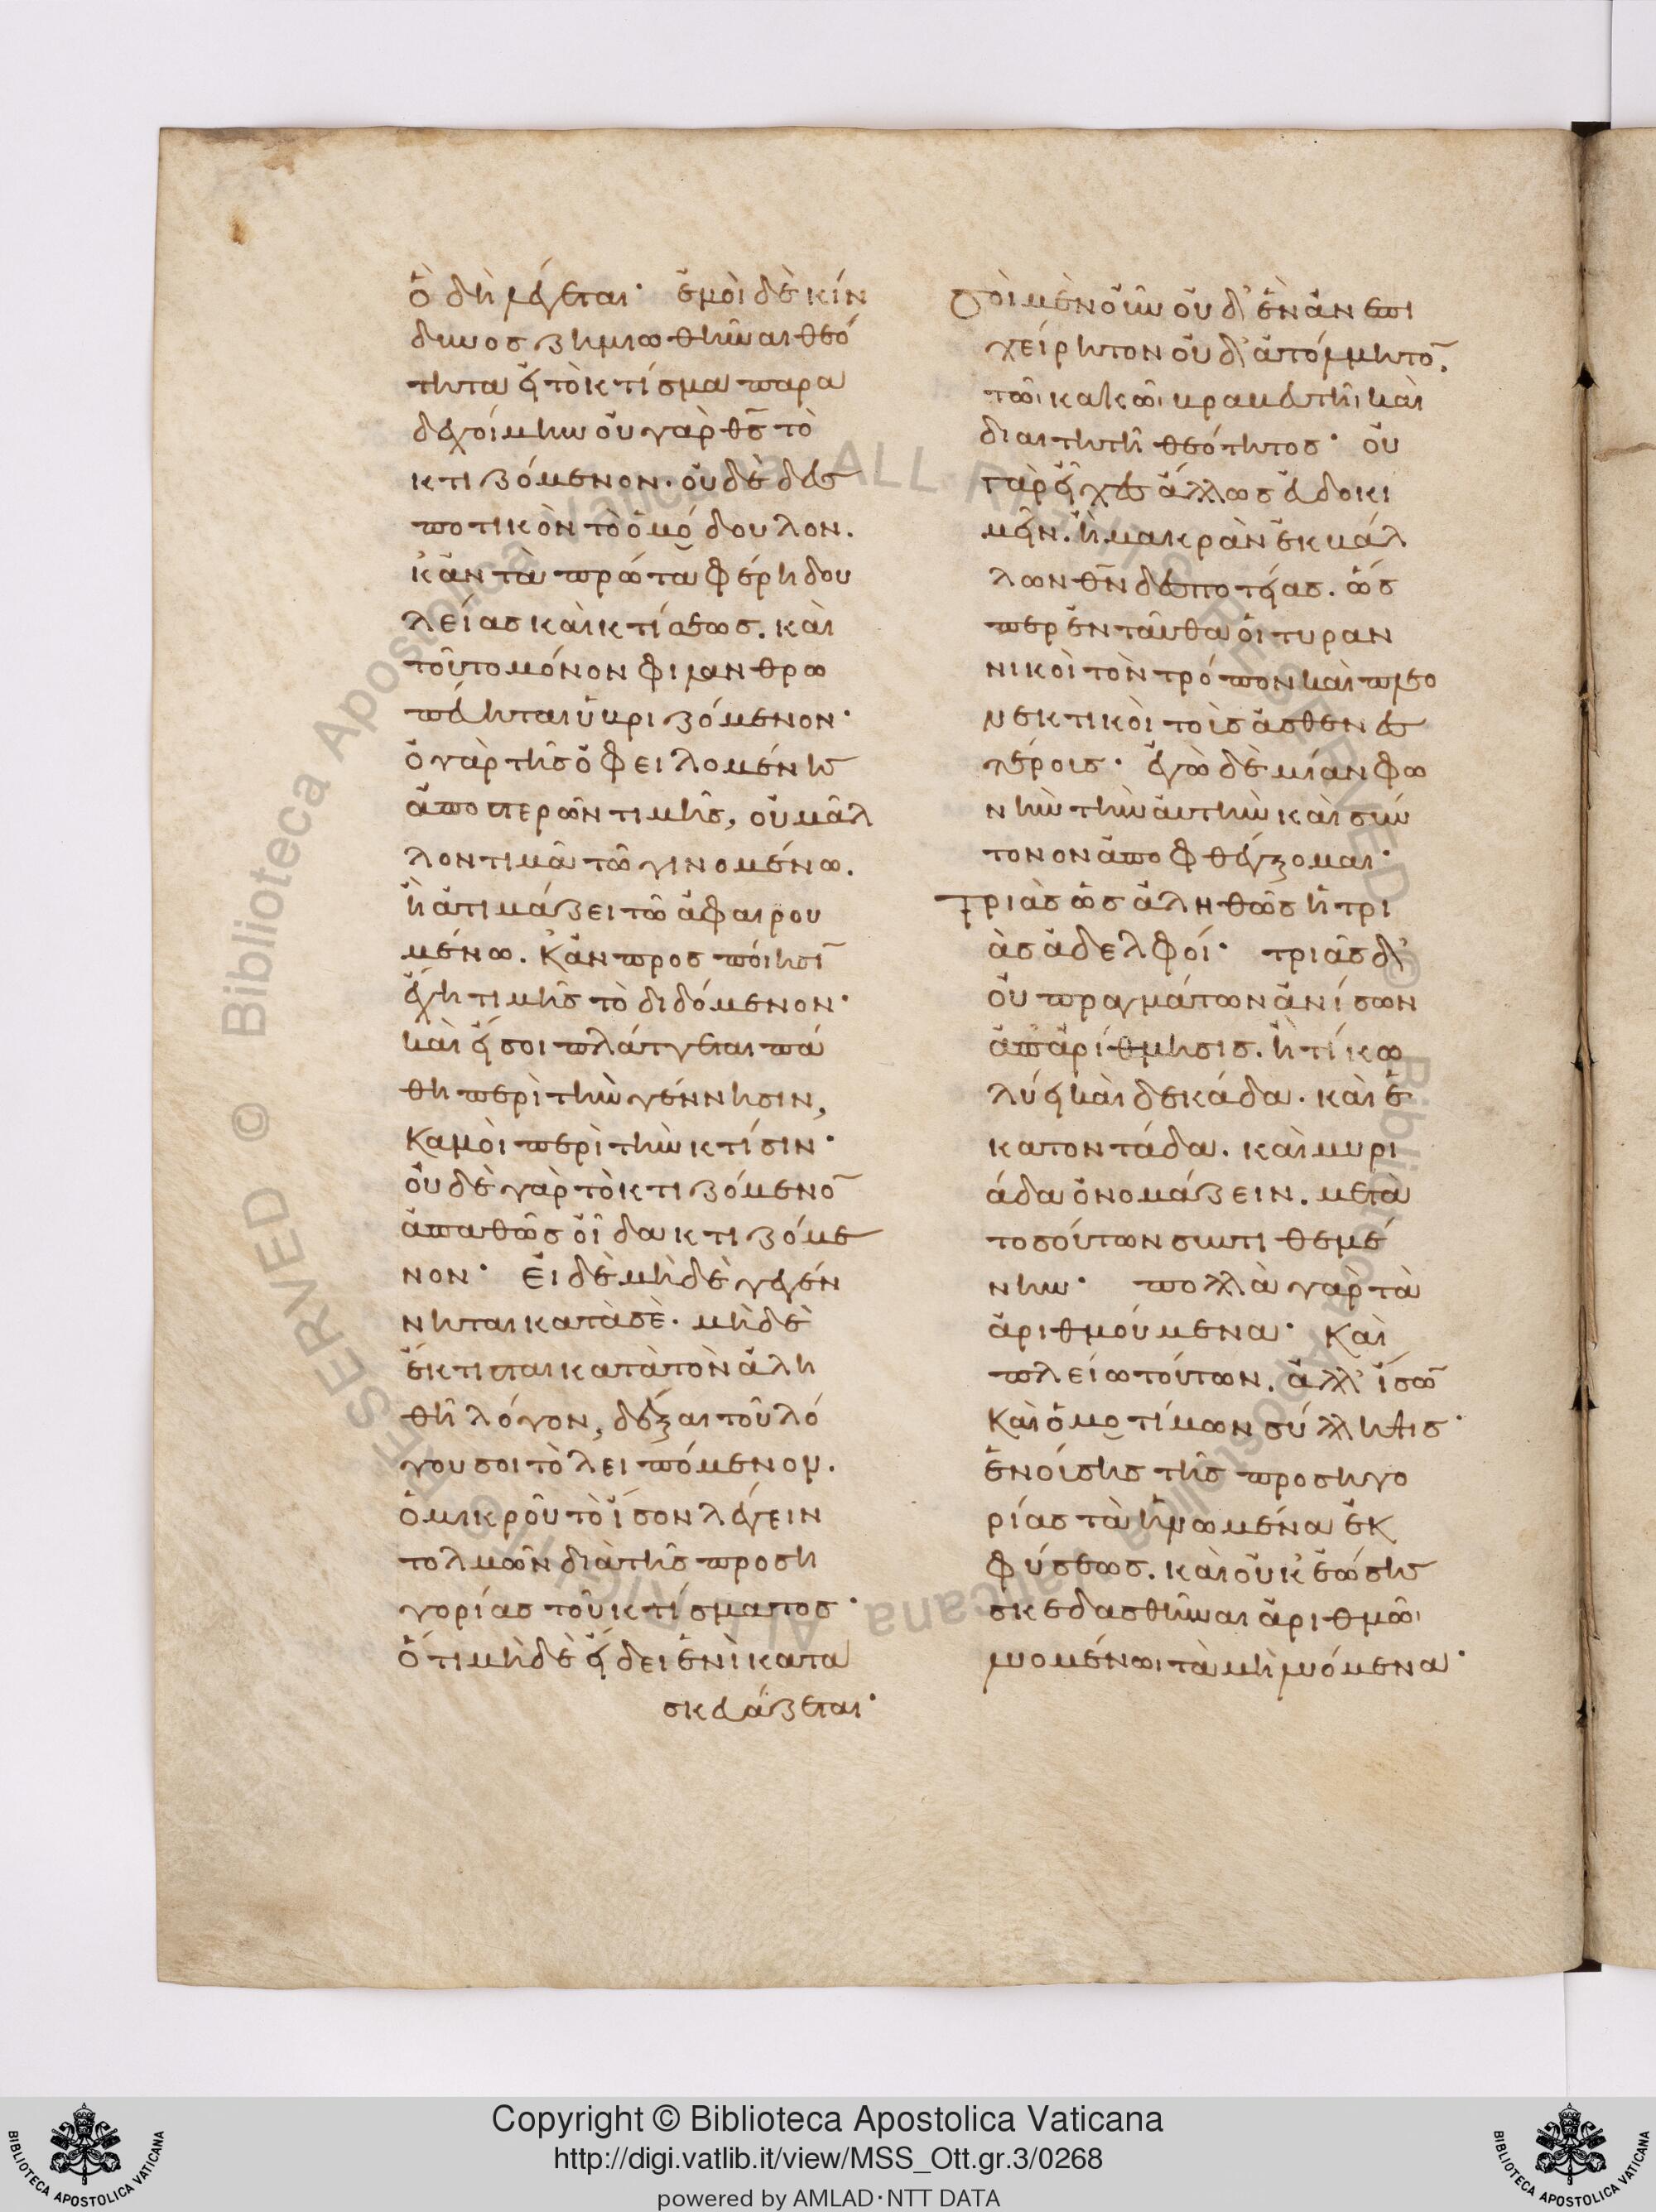 ὃ δὴ λέγεται· ἐμοὶ δὲ κίν
δυνος ζημιωθῆναι θεό
τητα εἰ τὸ κτίσμα παρα
δεχοίμην οὐ γὰρ θς τὸ
κτιζόμενον. οὐδὲ δεσ
ποτικὸν τὸ ὁμόδουλον.
κἂν τὰ πρῶτα φέρῃ δου
λείας καὶ κτίσεως. καὶ
τοῦτο μόνον φιλανθρω
πεύηται ὑβριζόμενον·
ὁ γὰρ τῆς ὀφειλομένης
ἀποστερῶν τιμῆς, οὐ μᾶλ
λον τιμᾶ τῶ γινομένω.
ἢ ἀτιμάζει τῶ ἀφαιρου
μένω. κἂν προσποίησῑ
ἔχη τιμῆς τὸ διδόμενον·
καὶ εἴ σοι πλάττεται πά
θη περὶ τὴν γέννησιν,
καμοὶ περὶ τὴν κτίσιν·
οὐδὲ γὰρ τὸ κτιζόμενο̄
ἀπαθῶς οἶδα κτιζόμε
νον· εἰ δὲ μὴδὲ γεγέν
νηται κατὰ σὲ. μὴδὲ
ἔκτισται κατὰ τὸν ἀλη
θῆ λόγον, δέξαι τοῦ λό
γου σοι τὸ λειπόμενον.
ὁ μικροῦ τὸ ἴσον λέγειν
τολμῶν διὰ τῆς προση
γορίας τοῦ κτίσματος·
ὅτι μὴδὲ εἴδει ἑνὶ κατα
σκευάζεται·
Σοὶ μὲν οὖν οὐδ' ἐν ἂν επι
χείρητον οὐδ' ἀτόλμητο̄.
τῶι κακῶι βραβευτῆι καὶ
διαιτητῆ θεότητος· οὐ
γὰρ εἶχες ἄλλως εὐδοκι
μεῖν. ἢ μακρὰν ἐκβάλ
λων θν̄ δεσποτείας. ὥσ
περ ἐνταῦθα οἱ τυραν
νικοὶ τὸν τρόπον καὶ πλεο
νεκτικοὶ τοὺς ἀσθενεσ
τέρους· ἐγὼ δὲ μίαν φω
νὴν τὴν αὐτὴν καὶ σύν
τονον ἀποφθέγξομαι·
Τριὰς ὡς ἀληθῶς ἡ τρι
ὰς ἀδελφοί· τριὰς δ'
οὐ πραγμάτων ἀνίσων
ἀπαρίθμησις. ἢ τί κω
λύει καὶ δεκάδα. καὶ ἑ
κατοντάδα. καὶ μυρι
άδα ὀνομάζειν. μετὰ
τοσούτων συντιθεμέ
νην· πολλὰ γὰρ τὰ
ἀριθμούμενα· καὶ
πλείω τούτων. ἀλλ' ἴσω̄
καὶ ὁμοτίμων σύλληψις·
ἑνούσης τῆς προσηγο
ρίας τὰ ἡνωμένα ἐκ
φύσεως. καὶ οὐκ ἐώσης
σκεδασθῆναι ἀριθμῶι
λυομένωι τὰ μὴ λυόμενα·
Copyright © Biblioteca Apostolica Vaticana
http://digi.vatlib.it/view/MSS_Ott.gr.3/0268
powered by AMLAD·NTT DATA